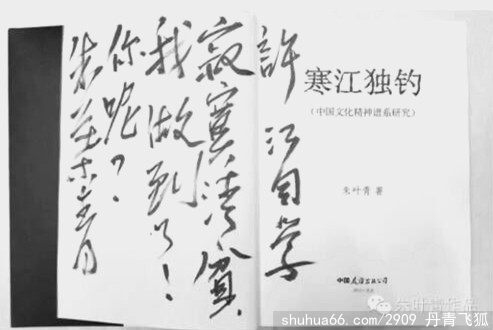 許江同学
寂寞清貧
我做到了！
你呢？
寒江独钓
（中国文化精神谱系研究）
朱叶青 著
中国友谊出版公司
朱叶青作品
shuhua66.com/2909 丹青飞狐